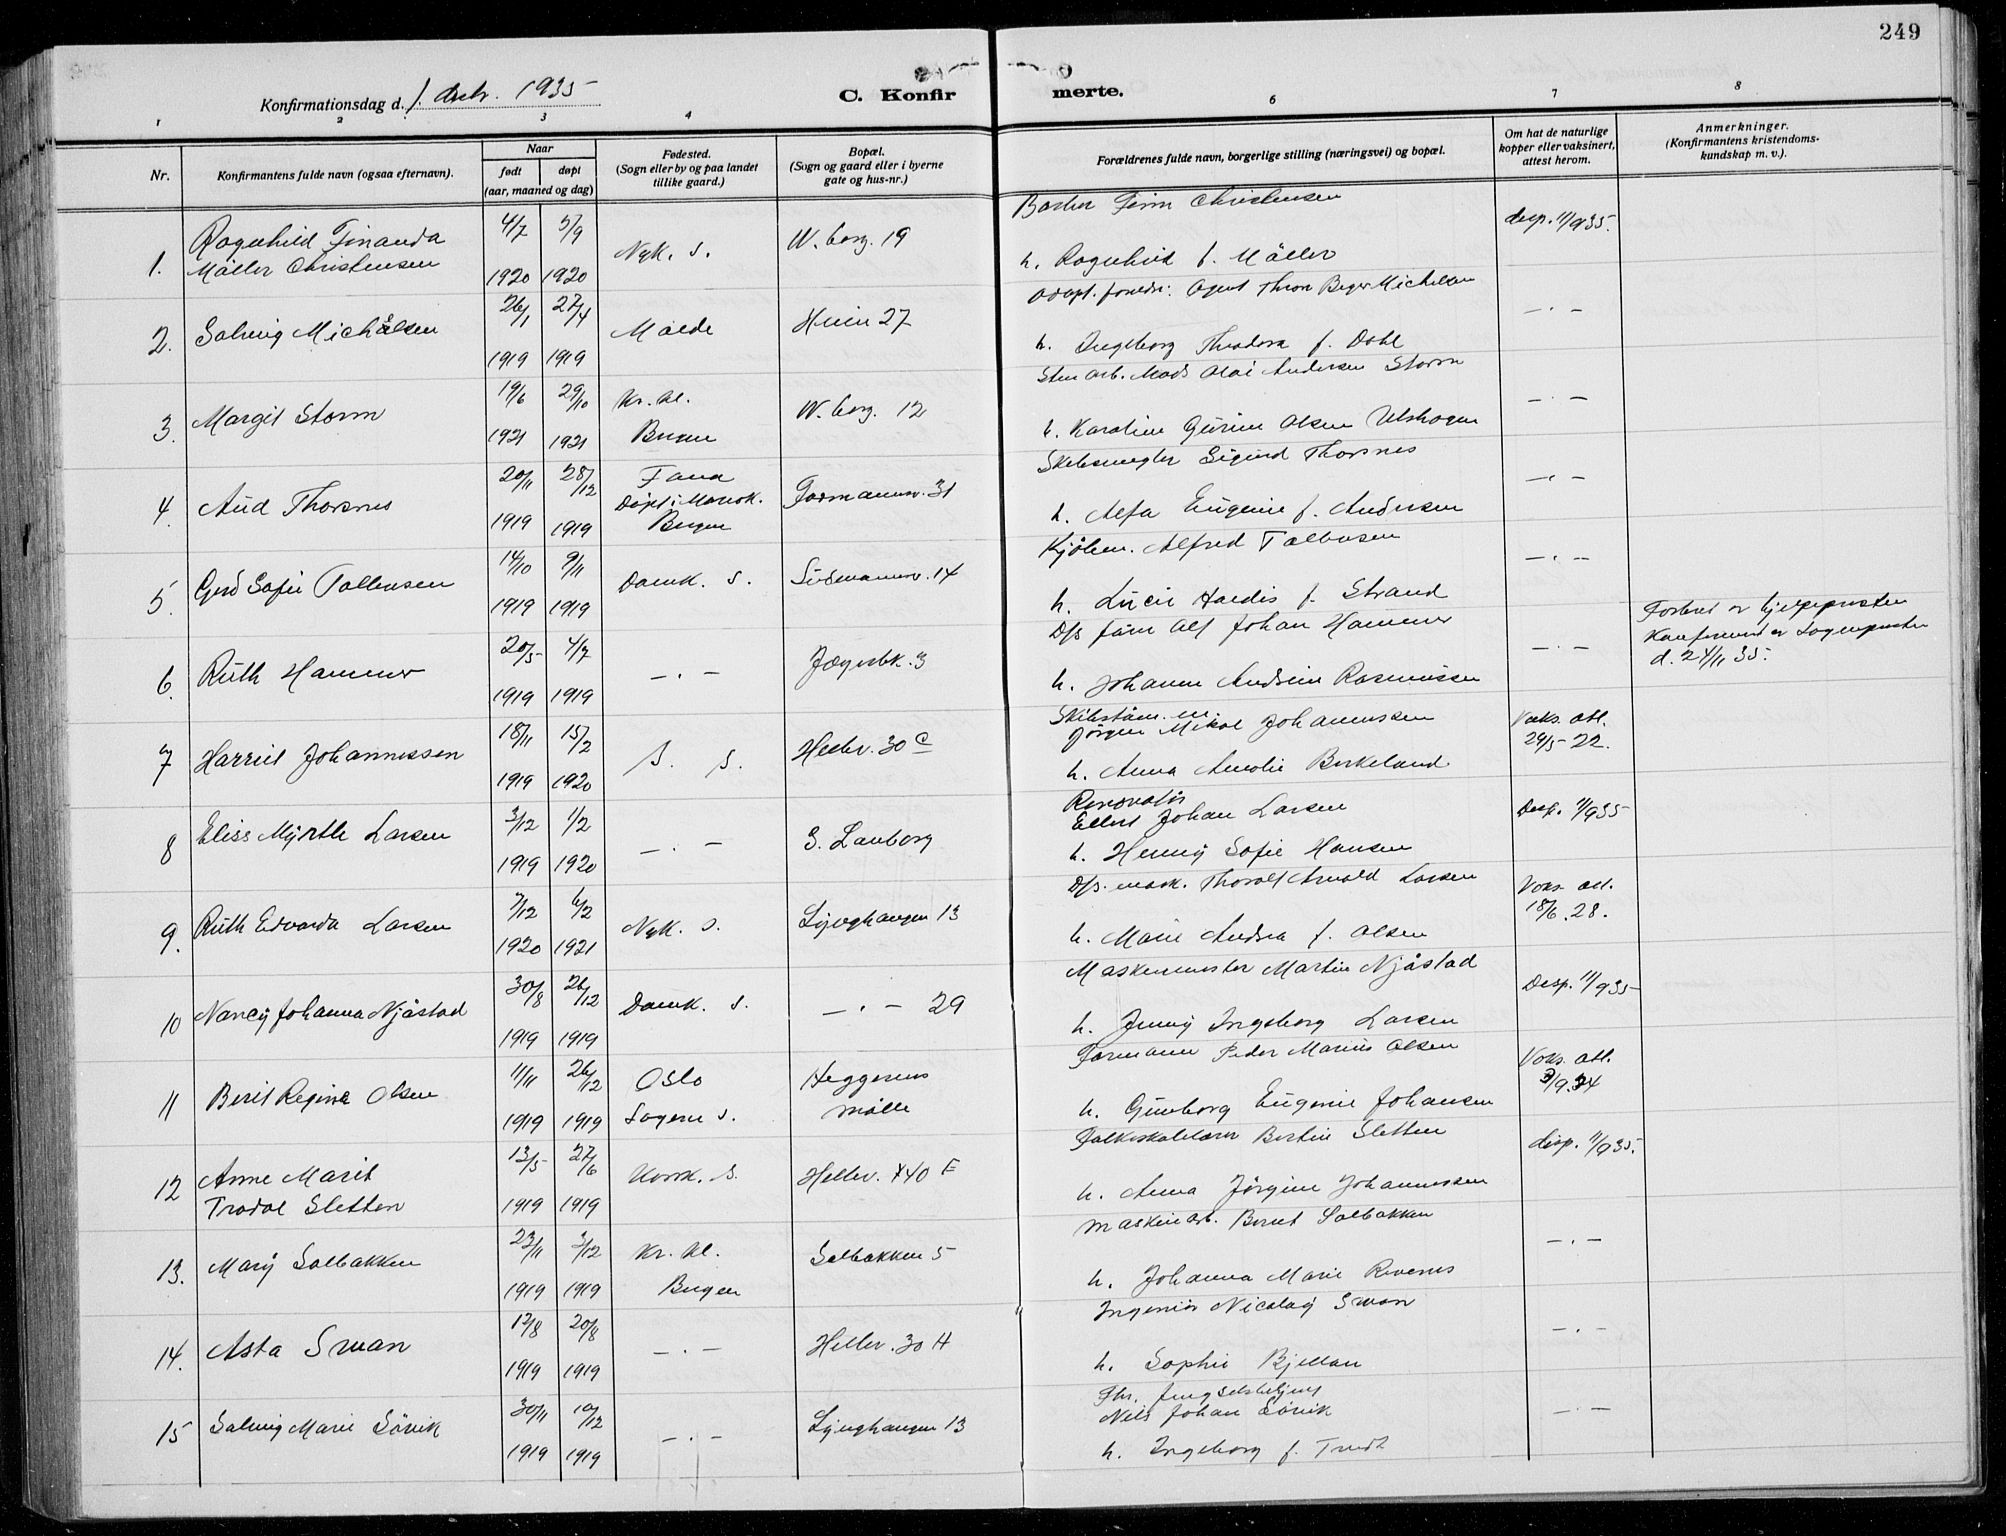 249
Konfirmationsdag d. 1. decbr. 1935
C. Konfir merte.
1 2 3 4 6 7 8
Nr.
Konfirmantens fulde navn (ogsaa efternavn).
Naar
født døpt
(aar, maaned og dag)
Fødested.
(Sogn eller by og paa landet
tillike gaard.)
Bopæl.
(Sogn og gaard eller i byerne
gate og hus-nr.)
Forældrenes fulde navn, borgerlige stilling (næringsvei) og bopæl.
Om hat de naturlige
kopper eller vaksinert,
attest herom.
Anmerkninger.
(Konfirmantens kristendoms-
kundskap m. v.).
1. Ragnhild Finanda
Møller Christensen
4/7 5/9
1920 1920
Nyk. s.
W. borg. 19
Finn Christensen
h. Ragnhild f. Møller
desp. 11/9 35.
2. Solveig Michalsen
26/1 27/4
1919 1919
Molde
27
adopt. foreldr: Agent Thron Beyer Michelsen
h. Ingeborg Theodora f. Dahl
— . —
3. Margit Storm
19/6 29/10
1921 1921
Kr. kl.
Bergen
W. borg. 12
Sten arb. Mads Olai Andersen Storm
h. Karoline Gurine Olsen
— . —
4. Aud Thorsnes
20/11 28/12
1919 1919
Fana
Døpt i Mariak.
Bergen
Formannsv. 31
Skibsmegler Sigurd Thorsnes
h. Alfa Eugenie f. Andersen
— . —
5. Gerd Sofie Tollevsen
14/10 9/11
1919 1919
Domk. s.
14
Kjøbm. Alfred Tollevsen
h. Lucie Hardis f. Strand
— . —
6. Ruth Hammer
20/5 4/7
1919 1919
— . —
Jægerbk. 3
D/s fører Alf Johan Hammer
h. Johanne Andrine Rasmussen
— . —
Forberet av hjelpepresten
Konfirmert av Sogneprester
d. 24/11 35.
7 Harriet Johannessen
18/11 15/2
1919 1920
S. s.
Hellev. 30 C
Skibstøm. m.
Jørgen Mikal Johannessen
h. Anna Amalie Birkeland
Vaks. att.
29/5 22.
8 Eliss Myrtle Larsen
3/12 1/2
1919 1920
— . —
Renovatør
Ellert Johan Larsen
h. Henny Sofie Hansen
Desp. 11/9 35
9. Ruth Edvarda Larsen
7/12 6/2
1920 1921
Nyk. s.
Lynghaugen 13
D/s. mask. Thorolf Arnold Larsen
h. Marie Andrea f. Olsen
Vaks. att.
18/6. 28.
10 Nancy Johanna Njåstad
30/8 26/12
1919 1919
Domk. s.
— . — 29
Maskinmester Martin Njåstad
h. Jenny Ingeborg Larsen
Desp. 11/9 35
11 Berit Regine Olsen
11/11 26/12
1919 1919
Oslo
Sagene s.
Heggernes
Mølle
Formann Peder Marius Olsen
h. Gunborg Eugenie Johansen
Vaks. att.
12 Anne Marit
Tradal Sletten
13/5 27/6
1919 1919
Korsk. s.
Hellev. 40 E
Folkeskolelærer Bertin Sletten
h. Anna Jørgine Johannessen
desp. 11/9 35.
13. Mary Solbakken
23/11 3/12
1919 1919
Kr. kl.
Bergen
Solbakken 5
Maskinarb. Bernt Solbakken
h. Johanna Marie
— . —
14. Asta Swan
12/8 20/8
1919 1919
— . —
Hellev. 30 H
Ingeniør Nicolay Swan
h. Sophie Bjellan
— . —
15 Solveig Marie Sørvik
30/11 10/12
1919 1919
— . —
Lynghaugen 13
Nils Johan Sørvik
h. Ingeborg f. Tundt
— . —